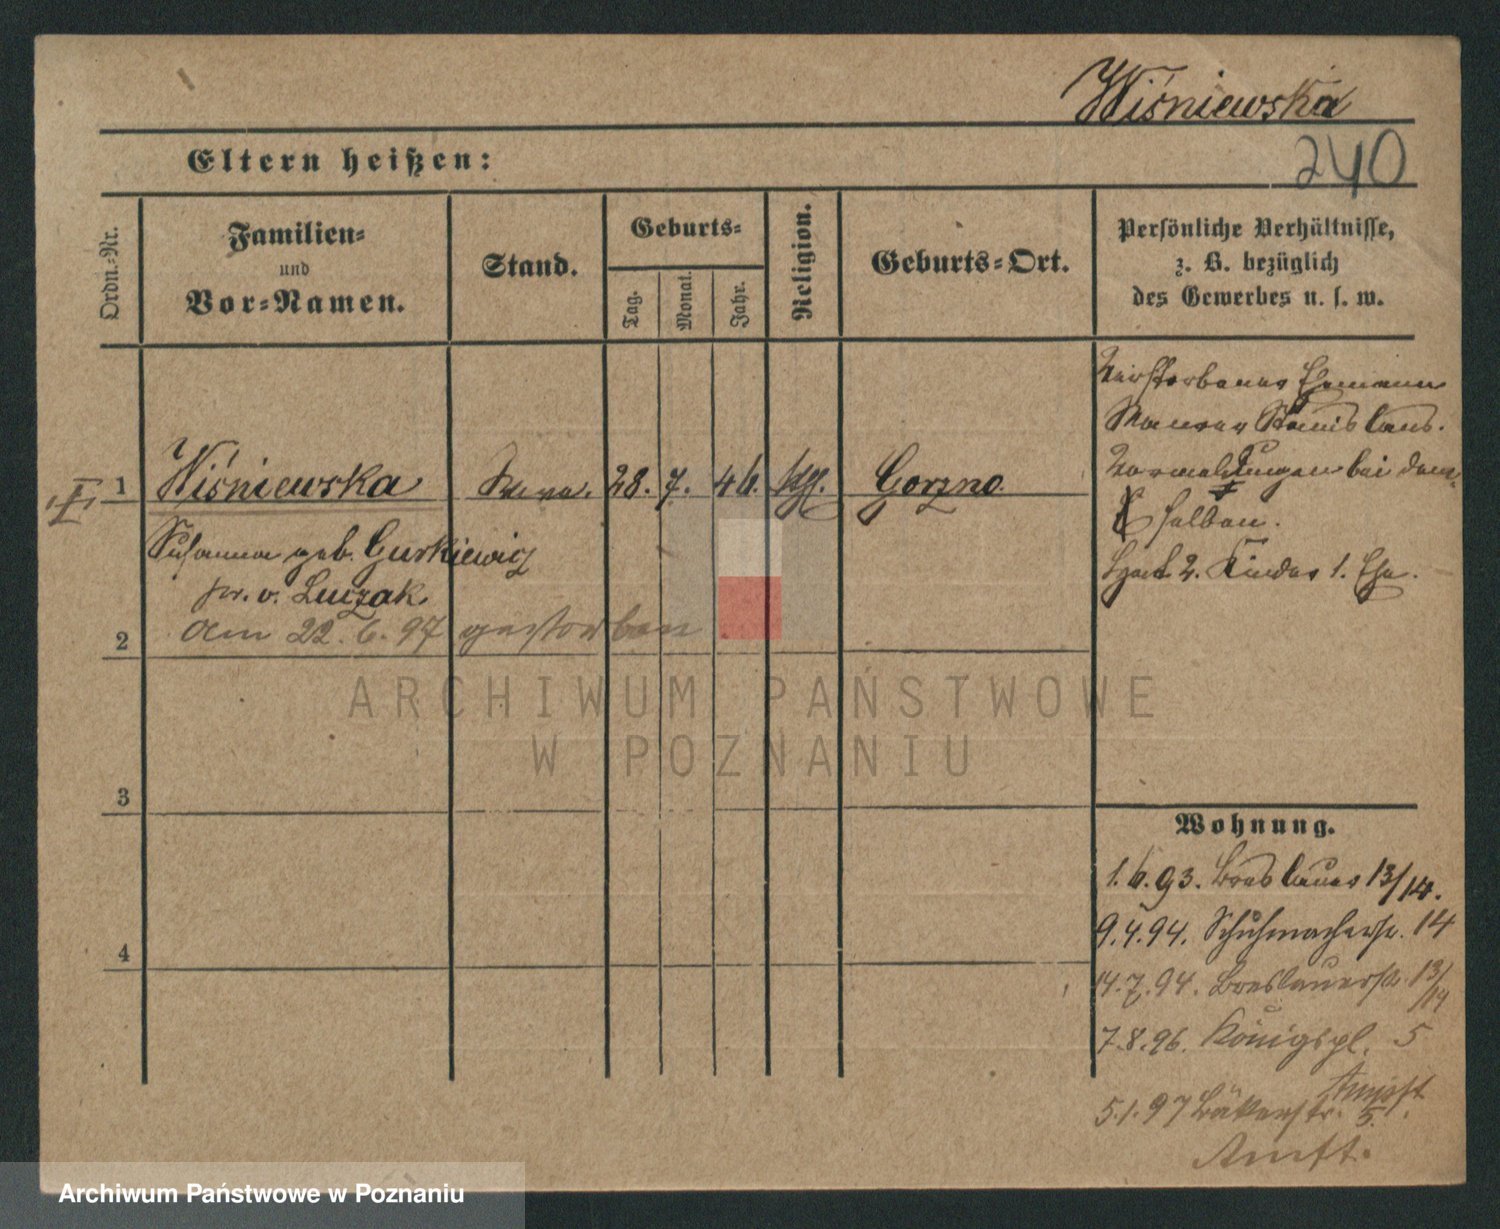 Wiśniewska
240
Eltern heißen:
Ordn.-Nr.
Familien-
und
Vor-Namen.
Stand.
Geburts-
Tag.
Monat.
Jahr.
Religion.
Geburts-Ort.
Persönliche Verhältnisse,
z. B. bezüglich
des Gewerbes u. s. w.
1 Wiśniewska Wwe. 28. 7. 46. kth. Gorzno
Susanna geb. Gurkiewicz
pr. v. Luczak
2 am 22.6.97 gestorben
3
4
Verstorbener Ehemann
Maurer Stanislaus.
Vermerkungen bei dem-
selben.
hat 2. Kinder 1. Ehe.
Wohnung.
1.6.93. Breslauer 13/14.
9.4.94. Schuhmacherstr. 14
14.7.94. Breslauerstr. 13/14
7.8.96. Königspl. 5
5.1.97 Bäkerstr. 5.
ARCHIWUM PAŃSTWOWE
W POZNANIU
Archiwum Państwowe w Poznaniu